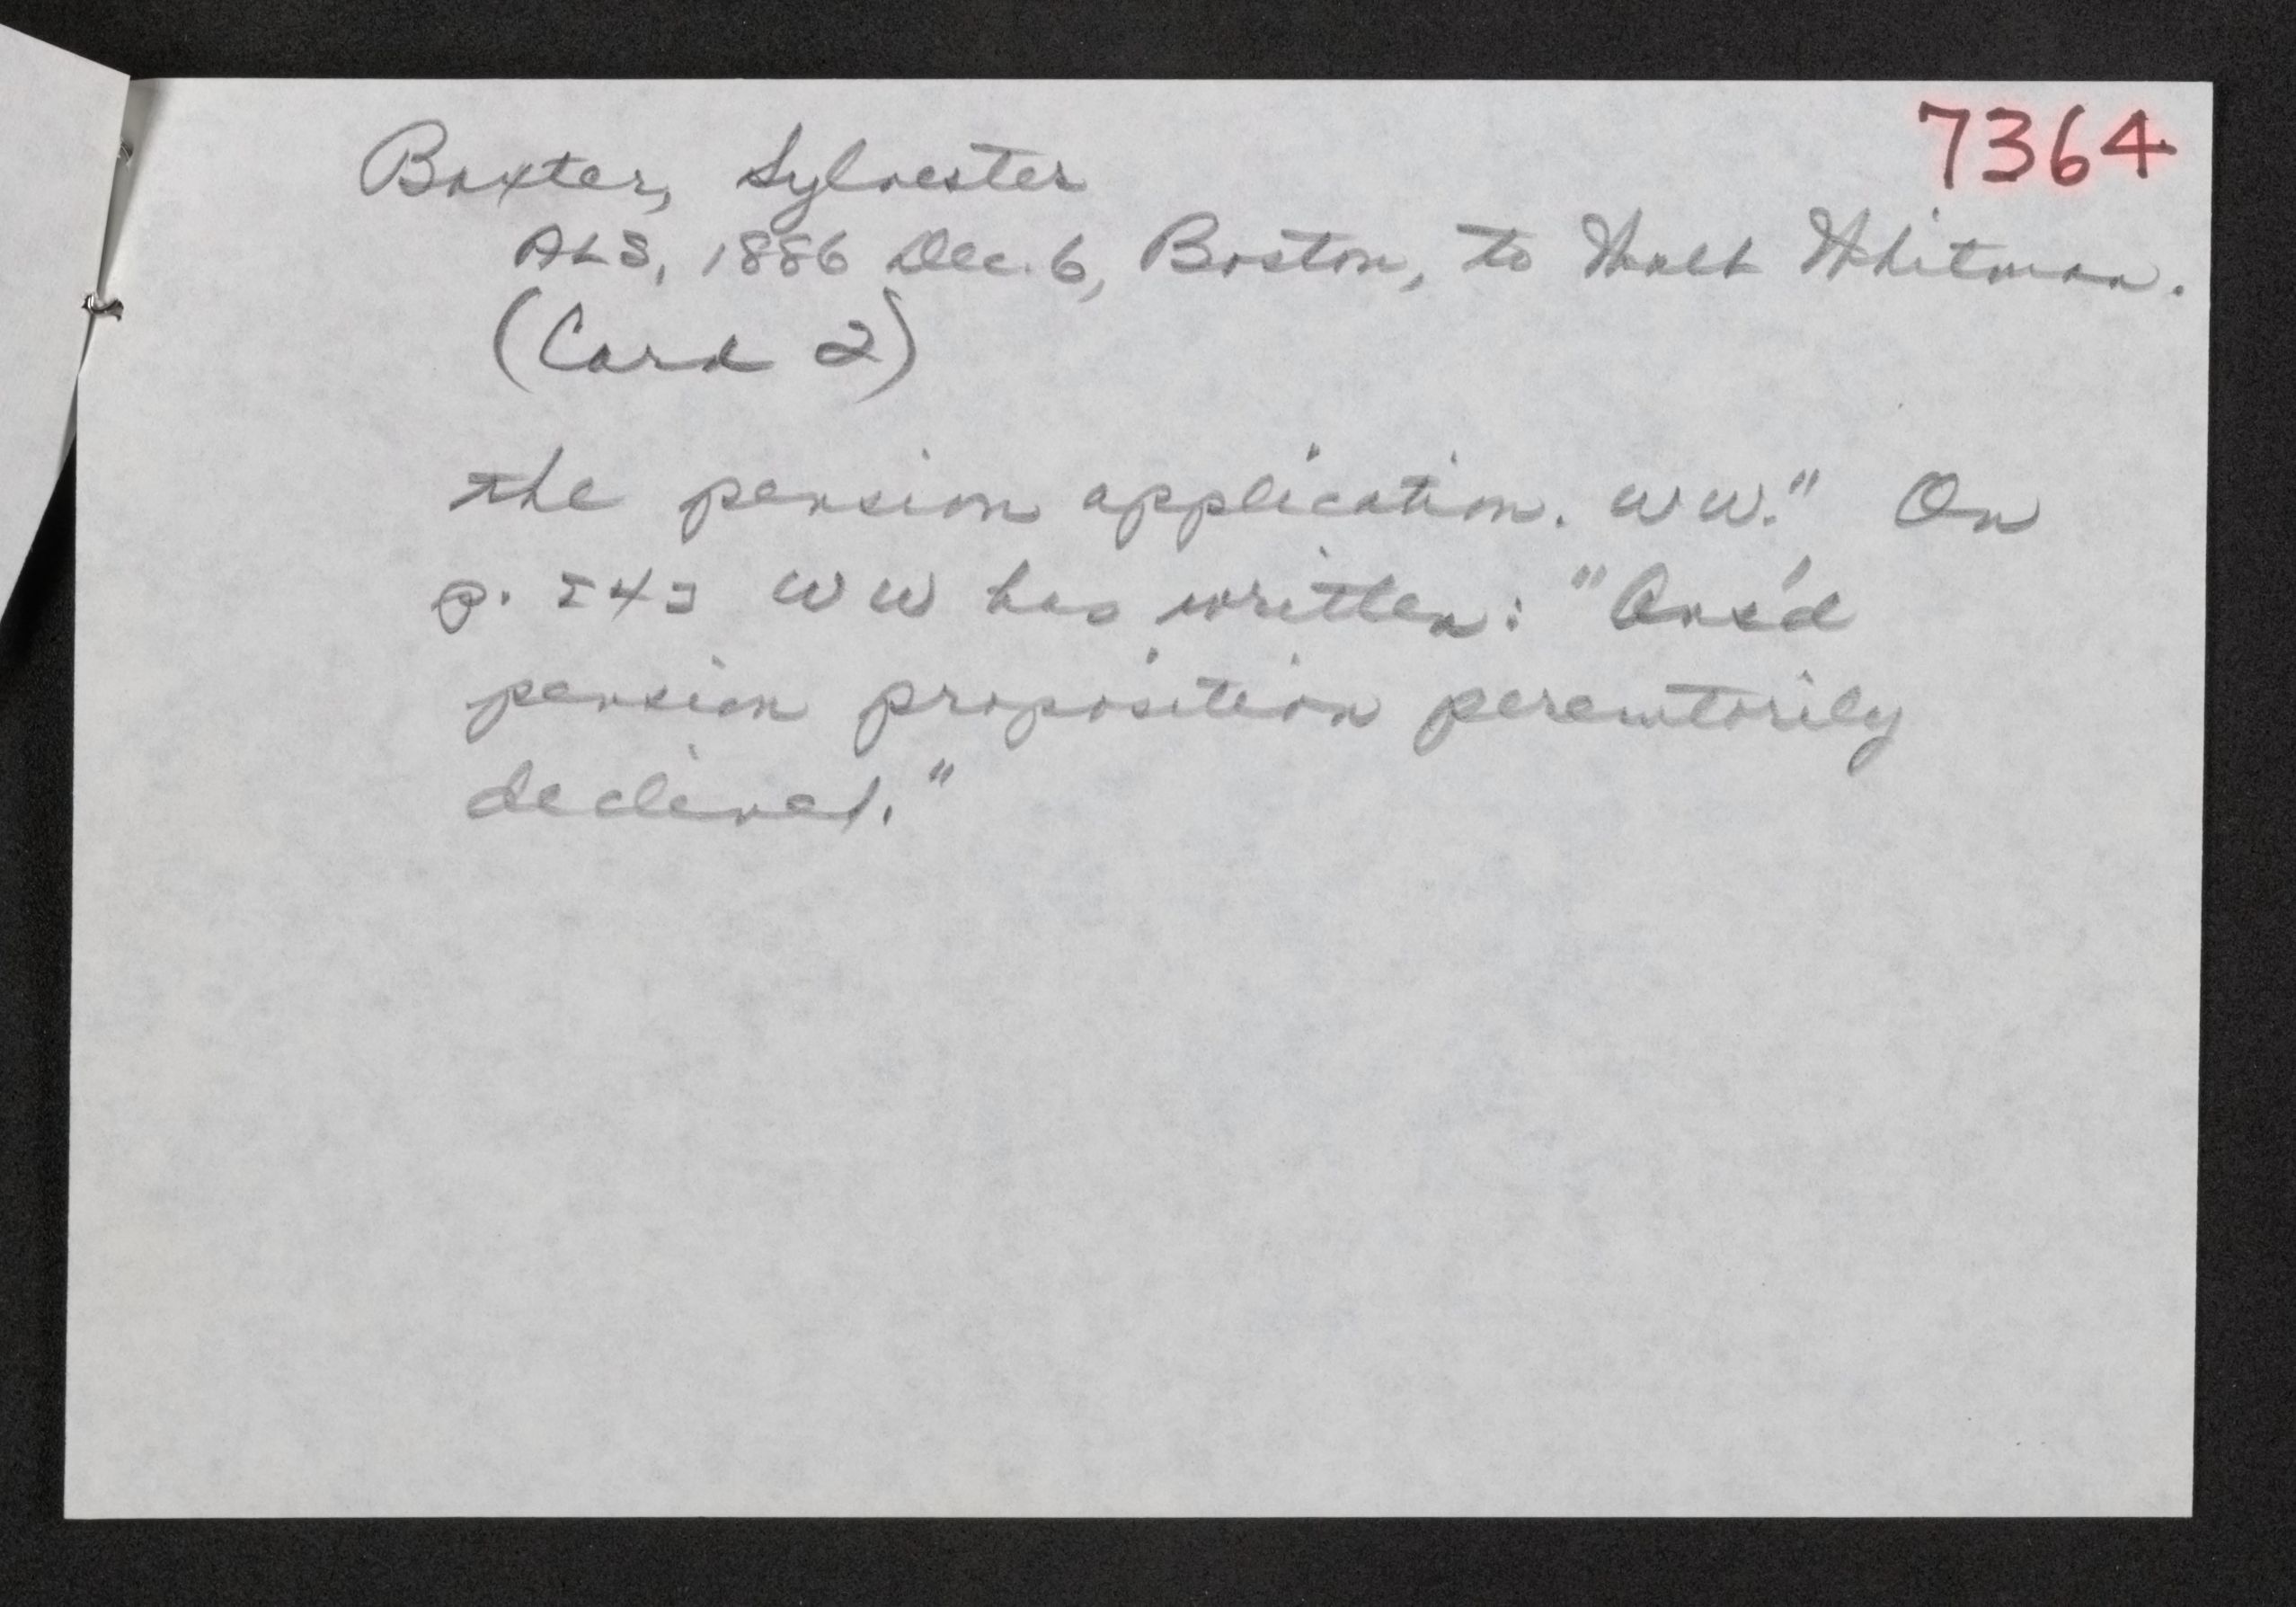 7364
Baxter, Sylvester
ALS, 1886 Dec. 6, Boston, to Walt Whitman.
(Card 2)
the pension application. WW." On
p. 243 WW has written: "Ans'd
pension proposition peremtorily
declined."